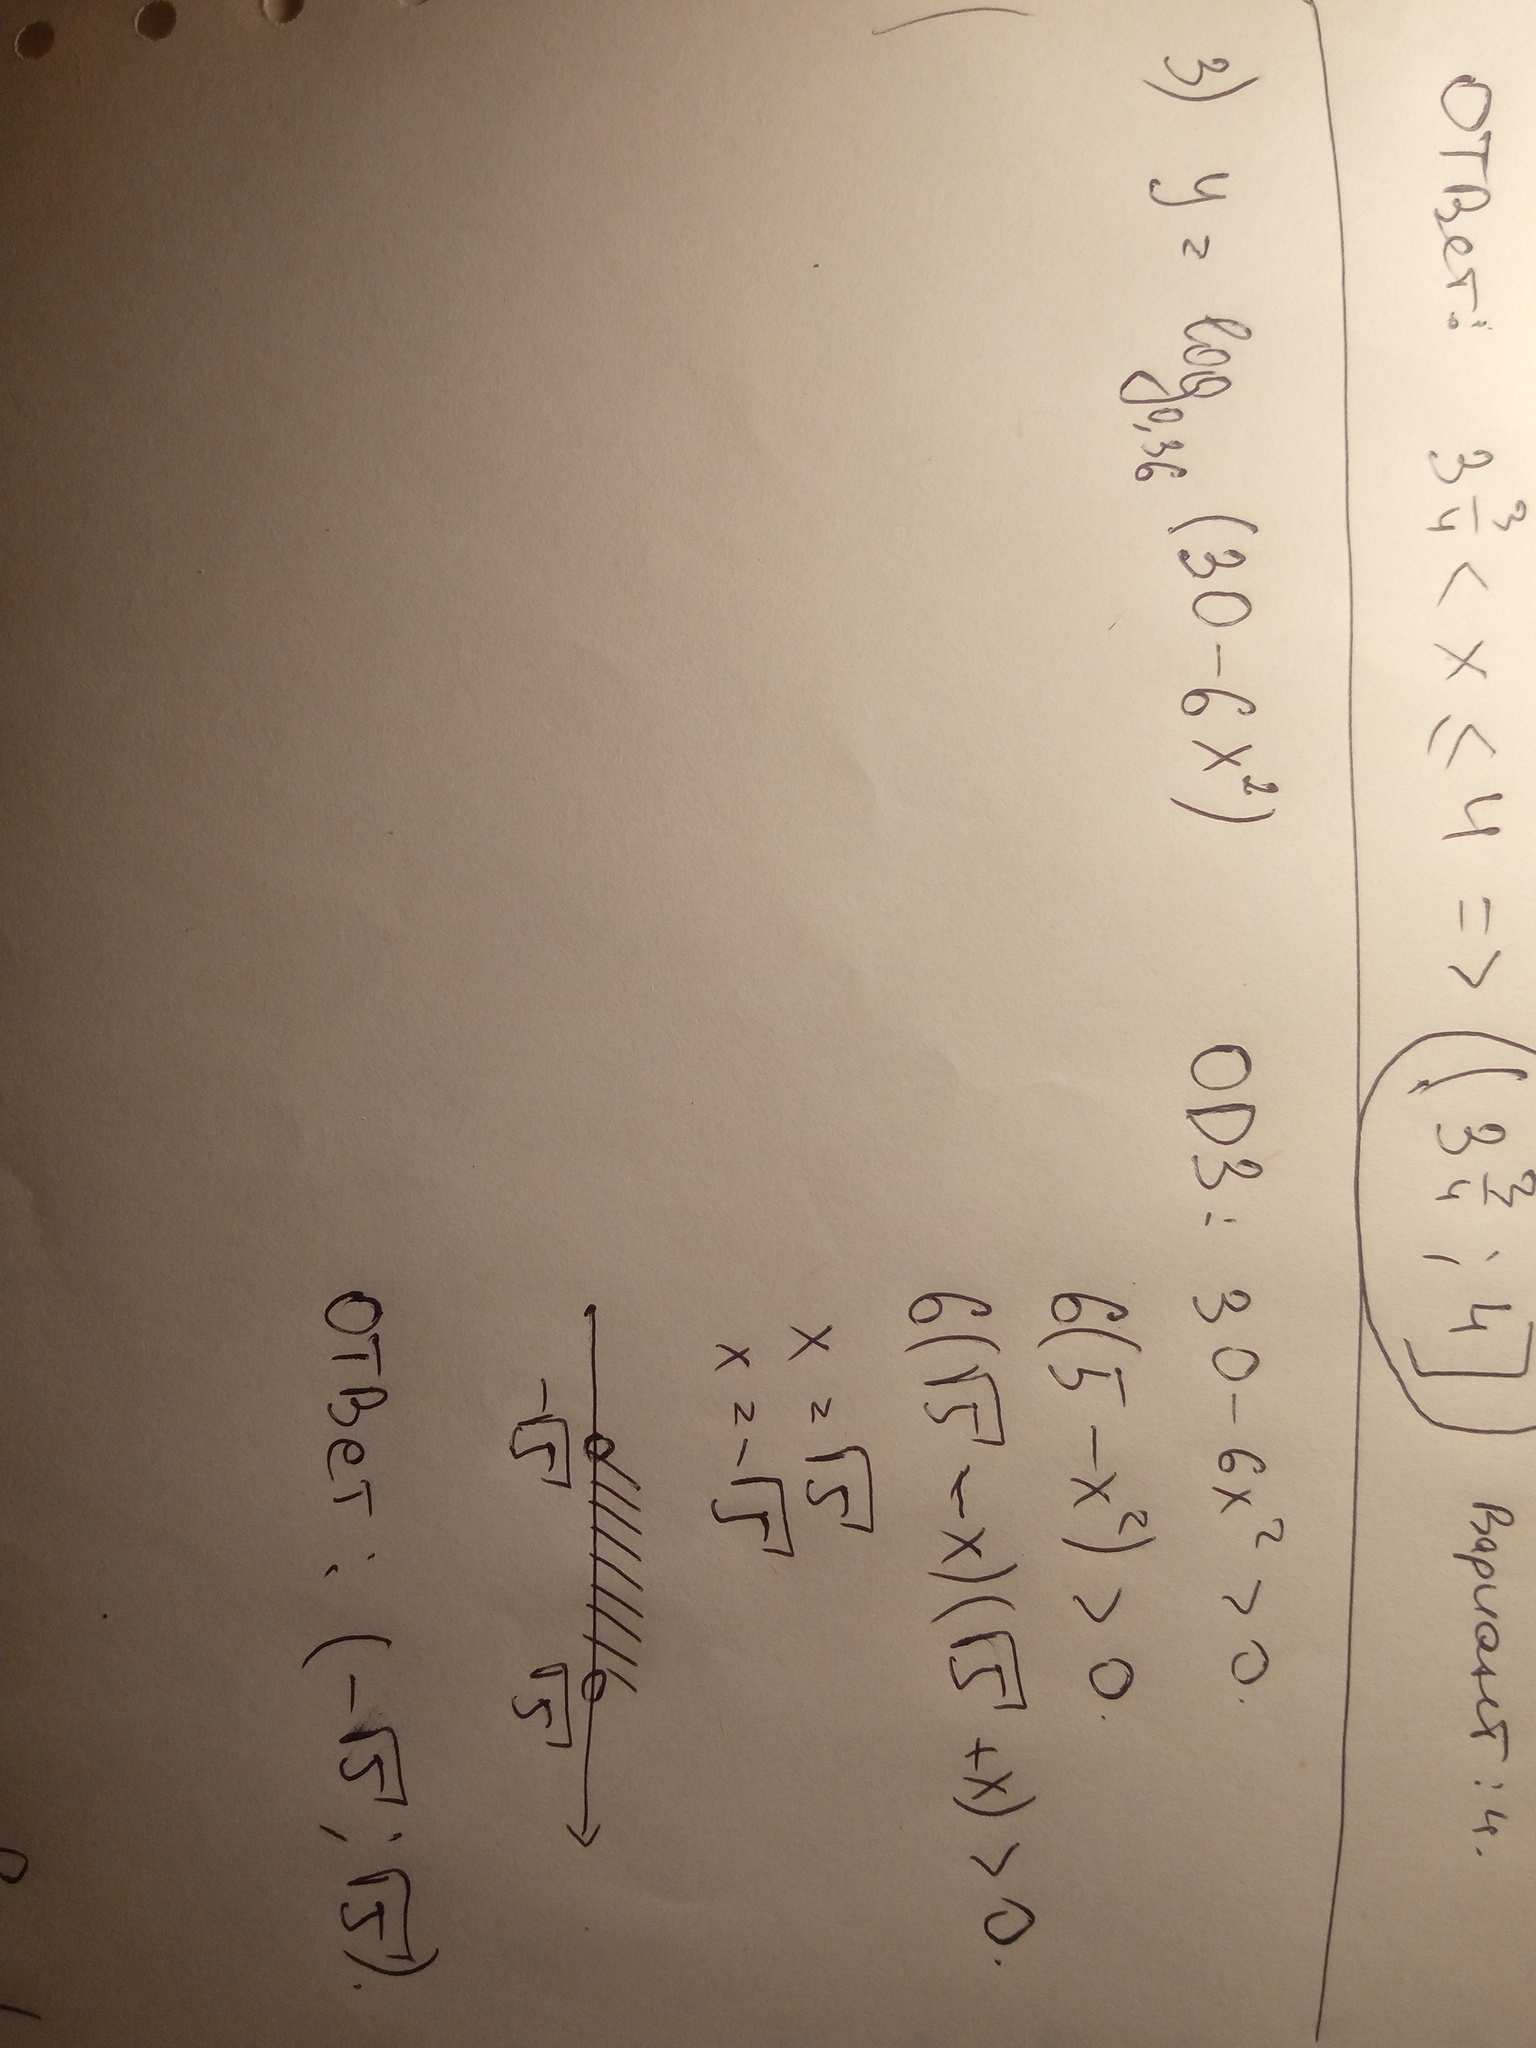 Ответ: 3 3/4 < x ≤ 4 => (3 3/4 ; 4] Вариант: 4.
3) y = log₀,₃₆ (30 - 6x²) ОДЗ: 30 - 6x² > 0.
6(5 - x²) > 0.
6(√5 - x)(√5 + x) > 0.
x = √5
x = -√5
-√5 √5
Ответ: (-√5; √5).